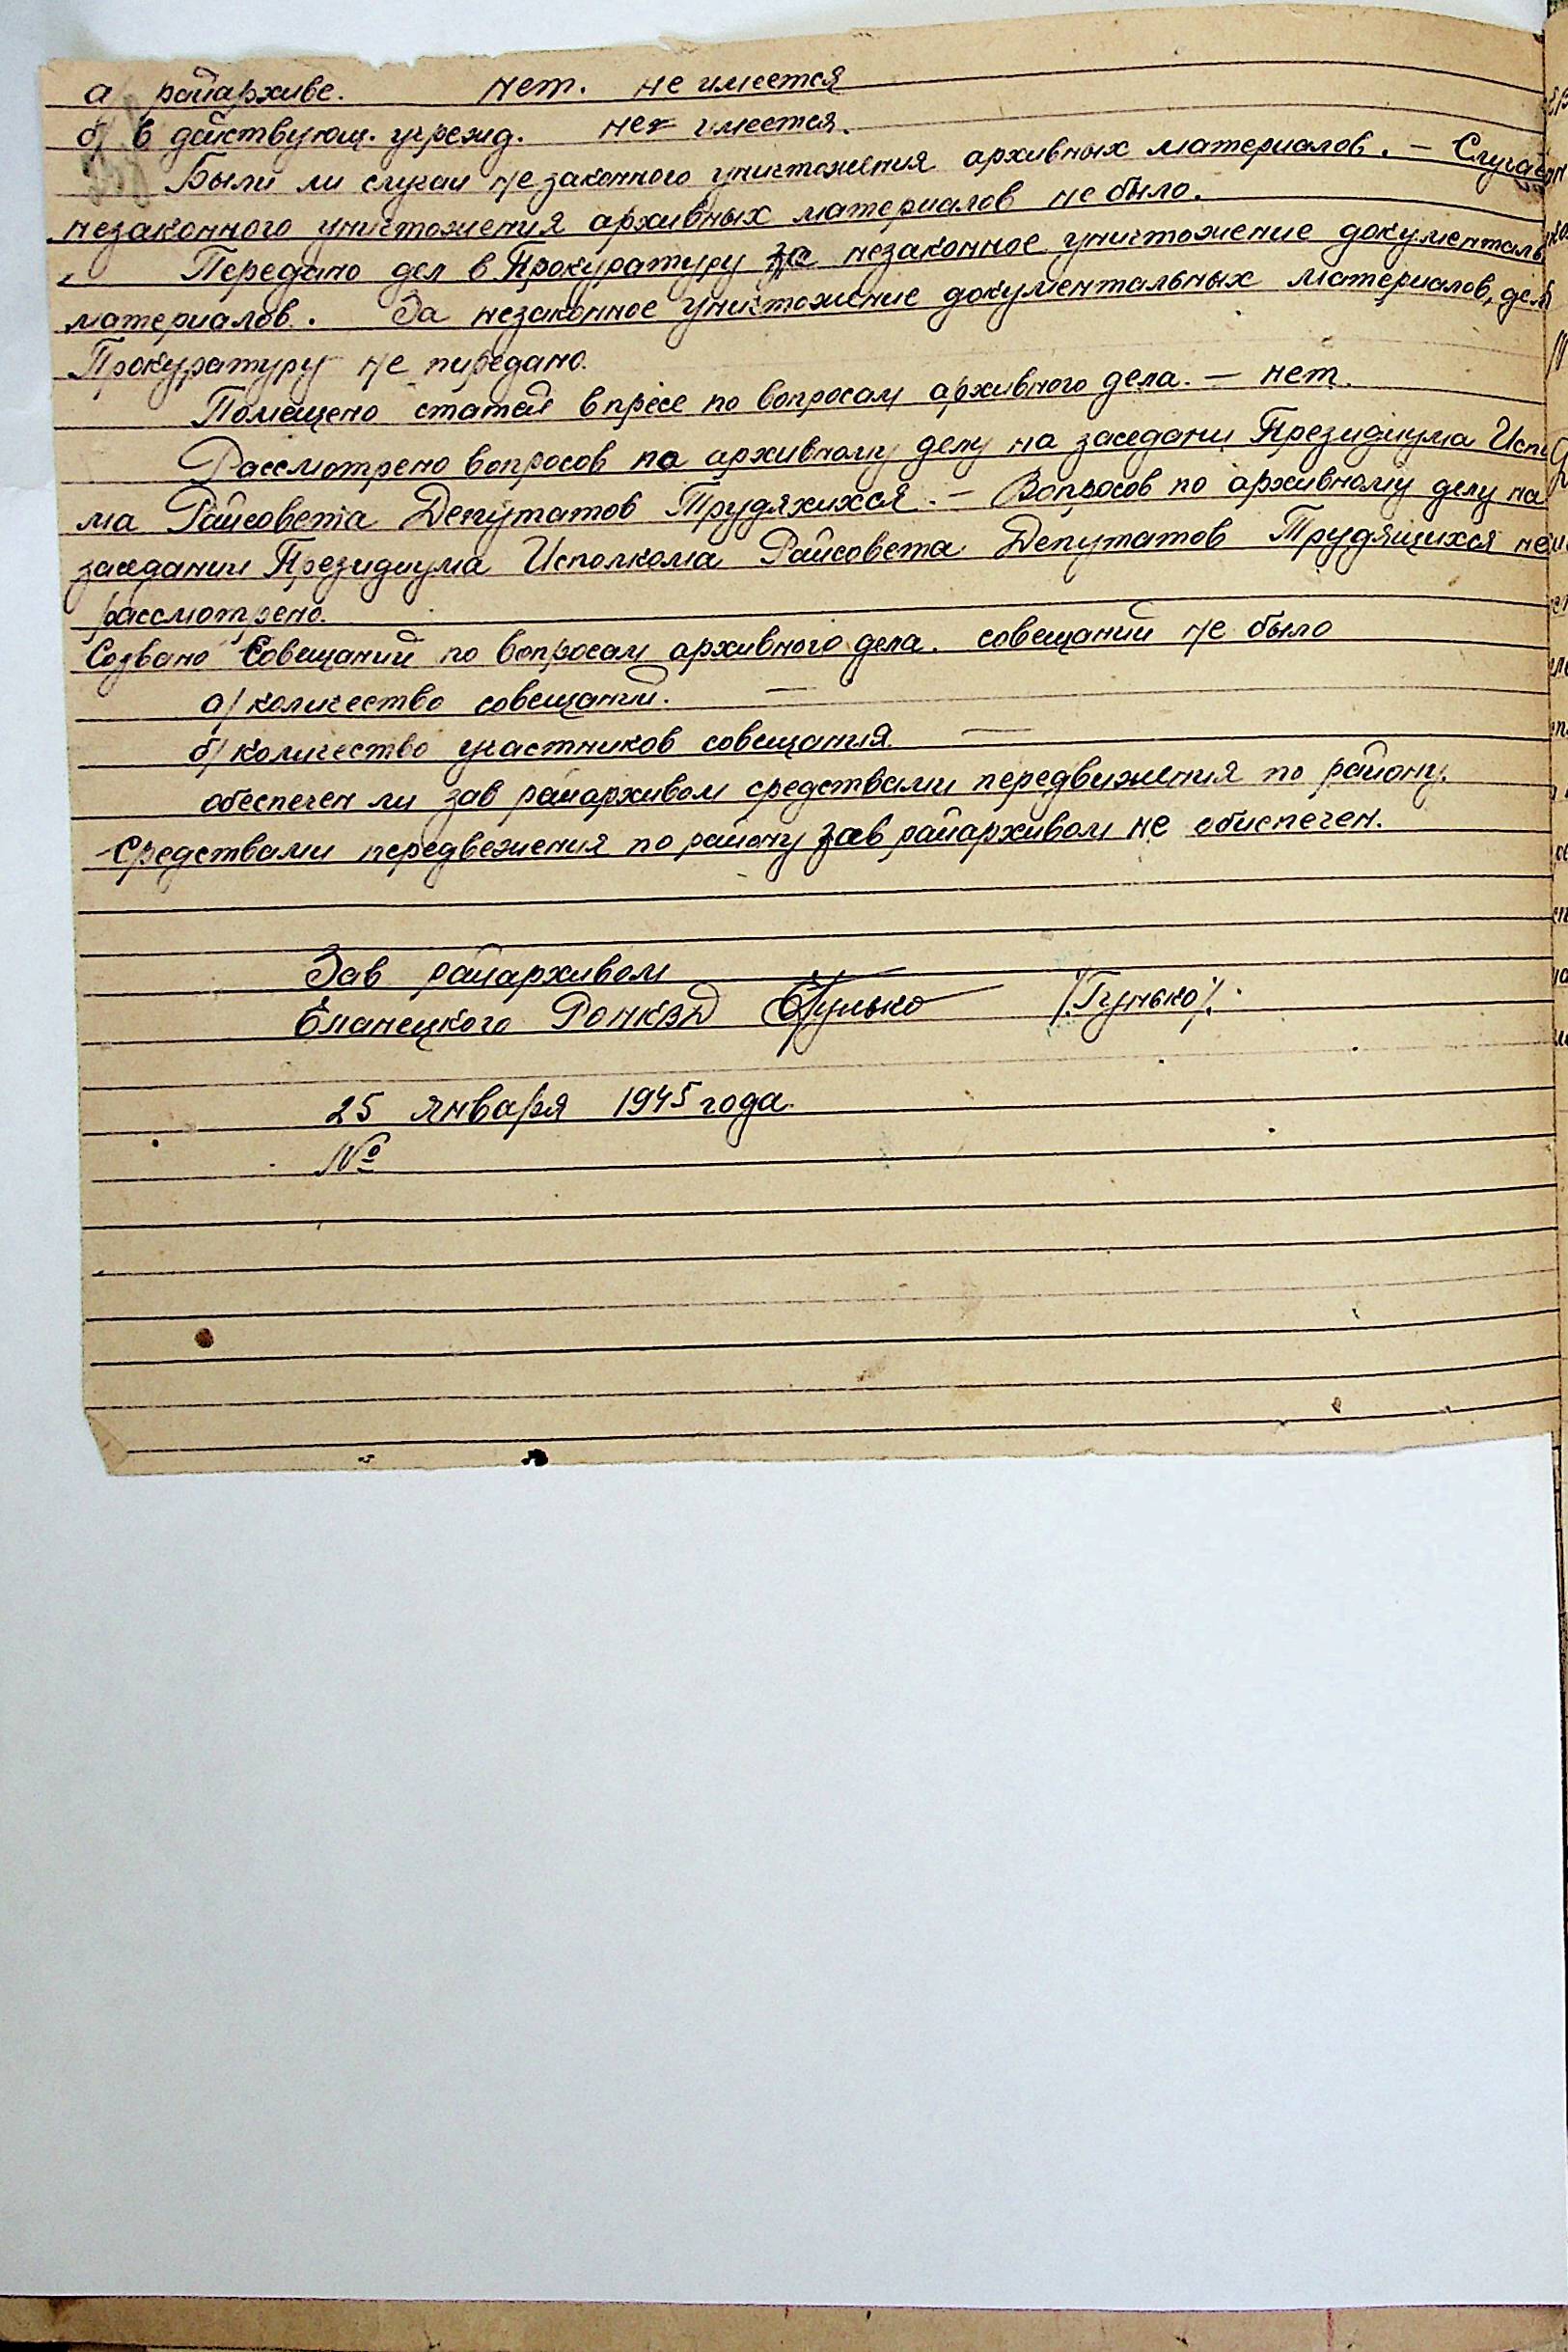 а) райархиве. нет. не имеется
б) в действующ. учрежд. не имеется.
Были ли случаи не законного уничтожения архивных материалов. — Случаев
незаконного уничтожения архивных материалов не было.
Передано дел в Прокуратуру за незаконное уничтожение документаль
материалов. За незаконное уничтожение документальных материалов, дел
Прокуратуру не передано.
Помещено статей в пресе по вопросам архивного дела. — нет.
Рассмотрено вопросов по архивному делу на заседани Президиума Испо
ма Райсовета Депутатов Трудяхихся. — Вопросов по архивному делу на
заседании Президиума Исполкома Райсовета Депутатов Трудящихся не
рассмотрено.
Созвано Совещаний по вопросам архивного дела. совещаний не было
а) количество совещаний. —
б) количество участников совещания —
обеспечен ли зав райархивом средствами передвижения по району.
Средствами передвежения по району зав райархивом не обиспечен.
Зав райархивом
Еланецкого РОНКВД Гунько /Гунько/.
25 января 1945 года.
№